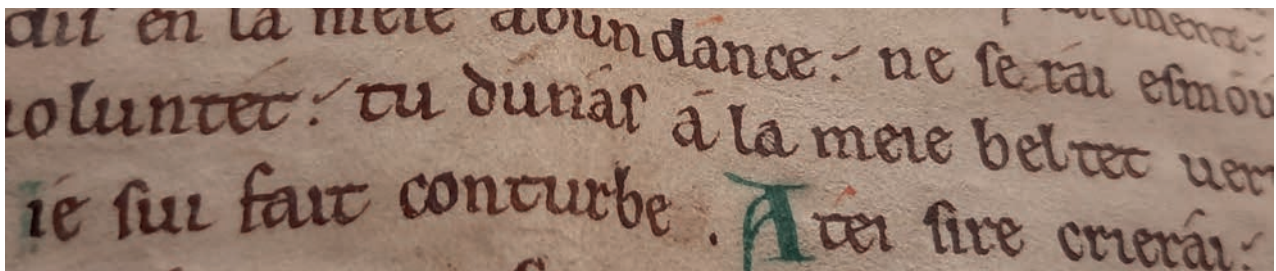 dit en la meie abundance: ne serai esmou
uoluntet: tu dunas a la meie beltet uert
ie sui fait conturbe. A tei sire crierai: